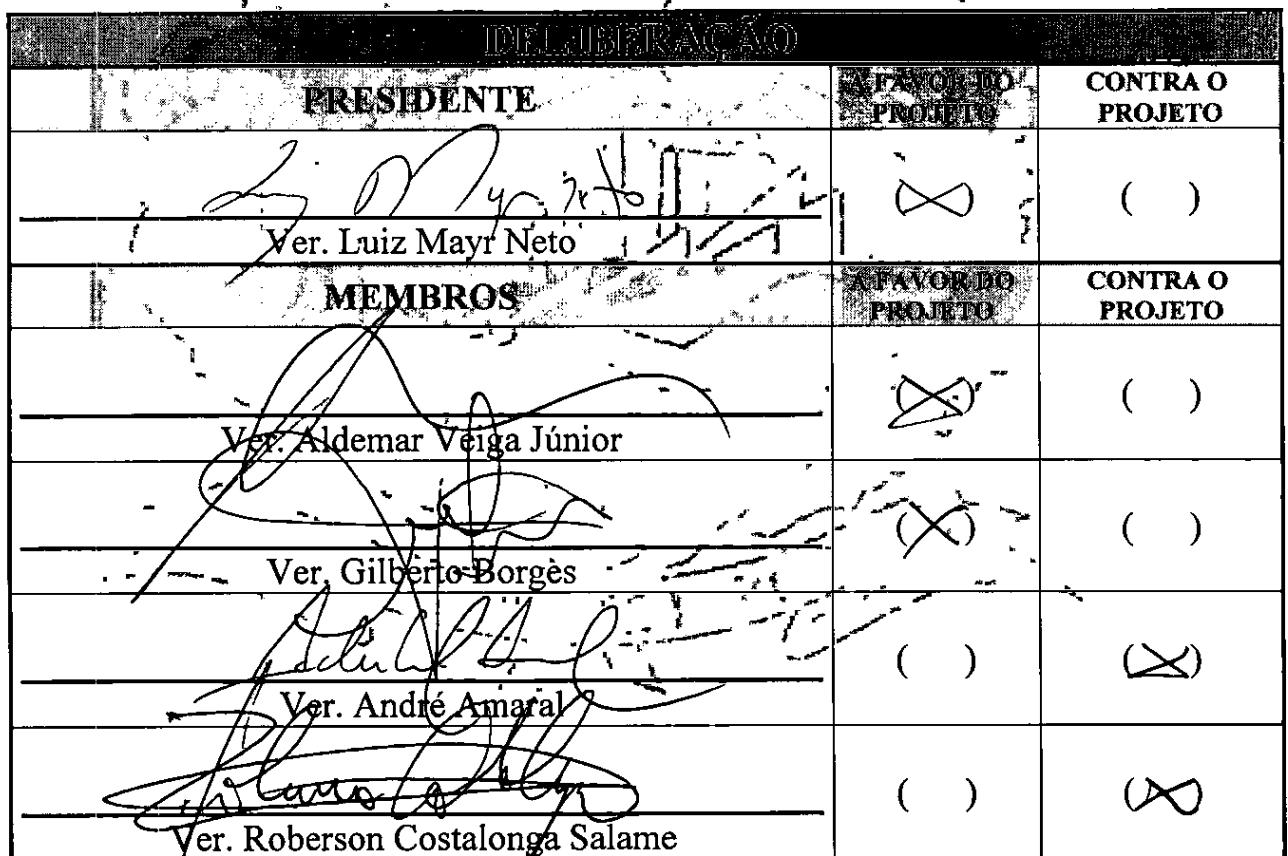 DELIBERAÇÃO
PRESIDENTE
A FAVOR DO PROJETO
CONTRA O PROJETO
(X)
( )
Ver. Luiz Mayr Neto
MEMBROS
A FAVOR DO PROJETO
CONTRA O PROJETO
(X)
( )
Ver. Aldemar Veiga Júnior
(X)
( )
Ver. Gilberto Borges
( )
(X)
Ver. André Amaral
( )
(X)
Ver. Roberson Costalonga Salame